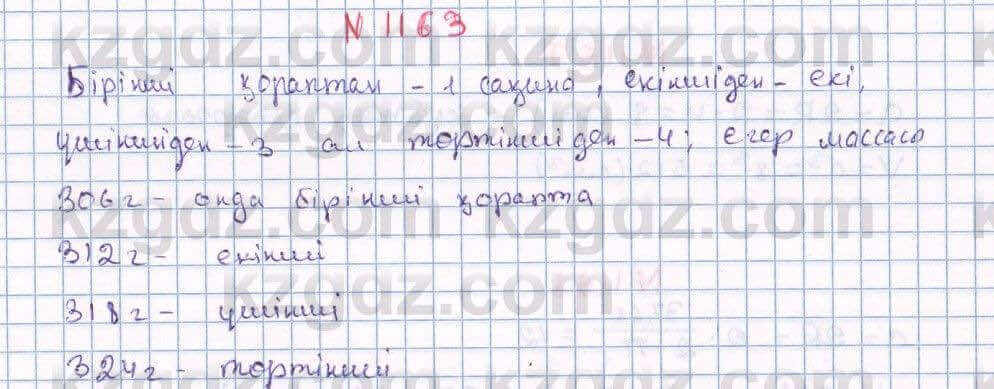 N 1163
Бірінші қораптан - 1 сақина, екіншіден - екі,
үшіншіден - 3 ал төртіншіден - 4; егер массасы
306г - онда бірінші қорапта
312г - екінші
318г - үшінші
324г - төртінші
kzgdz.com